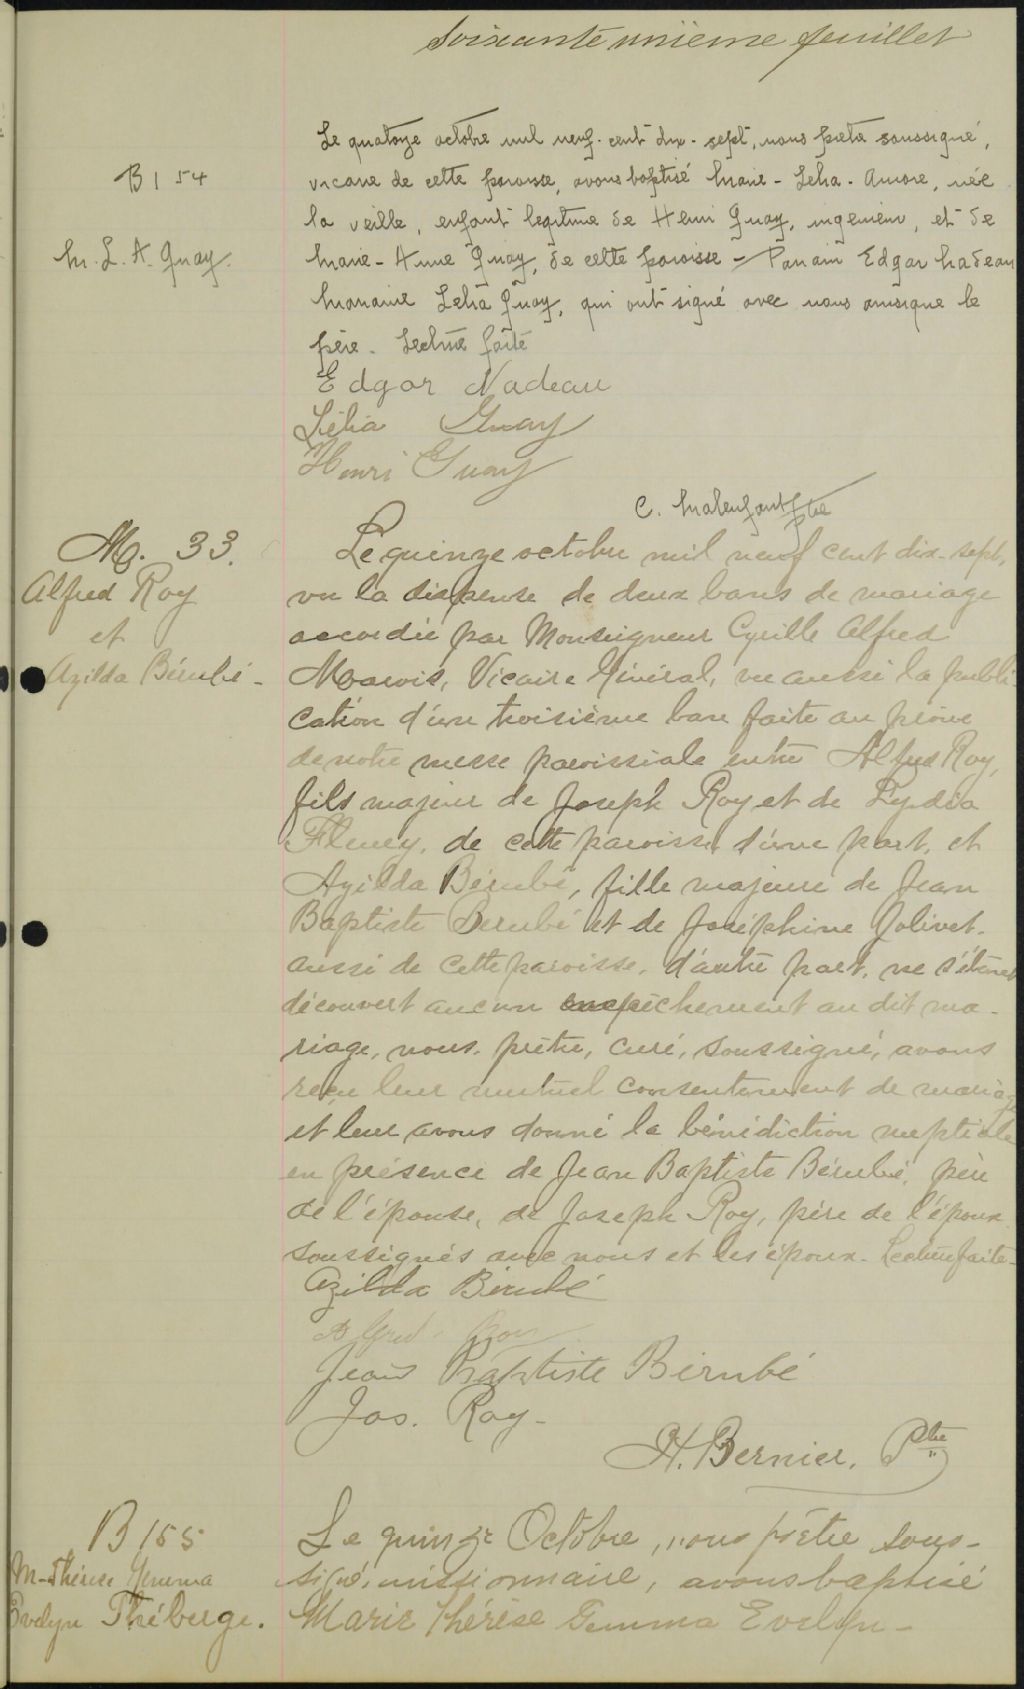 Soixante unième feuillet
B 154
M. L. A. Guay.
Le quatorze octobre mil neuf-cent dix-sept, nous prêtre soussigné,
vicaire de cette paroisse, avons baptisé Marie-Lelia-Aurore, née
la veille, enfant legitime de Henri Guay, ingenieur, et de
Marie-Anne Guay, de cette paroisse - Parrain Edgar Nadeau
Marraine Lelia Guay, qui ont signé avec nous ainsi que le
père. Lecture faite
Edgar Nadeau
Lélia Guay
Henri Guay
C. Malenfant ptre
M. 33.
Alfred Roy
et
Azilda Bérubé -
Le quinze octobre mil neuf cent dix-sept,
vu la dispense de deux bans de mariage
accordée par Monseigneur Cyrille Alfred
Marois, Vicaire Général, vu aussi la publi-
cation d'un troisième ban faite au prône
de notre messe paroissiale entre Alfred Roy,
fils majeur de Joseph Roy et de Lydia
Fleury, de cette paroisse d'une part, et
Azilda Bérubé, fille majeure de Jean
Baptiste Berubé et de Joséphine Jolivet.
aussi de cette paroisse, d'autre part, ne s'étant
découvert aucun empêchement au dit ma-
riage, nous, prêtre, curé, soussigné, avons
reçu leur mutuel consentement de mariage
et leur avons donné la bénédiction nuptiale
en présence de Jean Baptiste Bérubé, père
de l'épouse, de Joseph Roy, père de l'époux
soussignés avec nous et les époux. Lecture faite -
Azilda Bérubé
Alfred Roy
Jean Baptiste Bérubé
Jos. Roy -
H. Bernier, Ptre
B 155
M-Thérèse Gemma
Evelyn Théberge.
Le quinze Octobre, nous prêtre sous-
signé, missionnaire, avons baptisé
Marie Thérèse Gemma Evelyn -